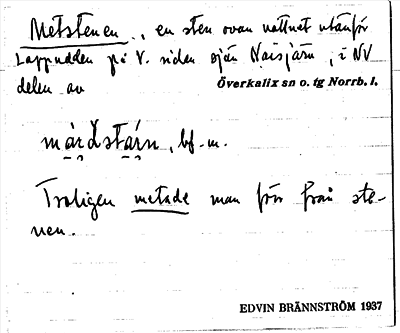 Metstenen., en sten ovan vattnet utanför
Lappudden på V. sidan sjön Naisjärn, i NV
delen av Överkalix sn o. tg Norrb. l.
bf. m.
Troligen metade man förr från ste-
nen.
EDVIN BRÄNNSTRÖM 1937